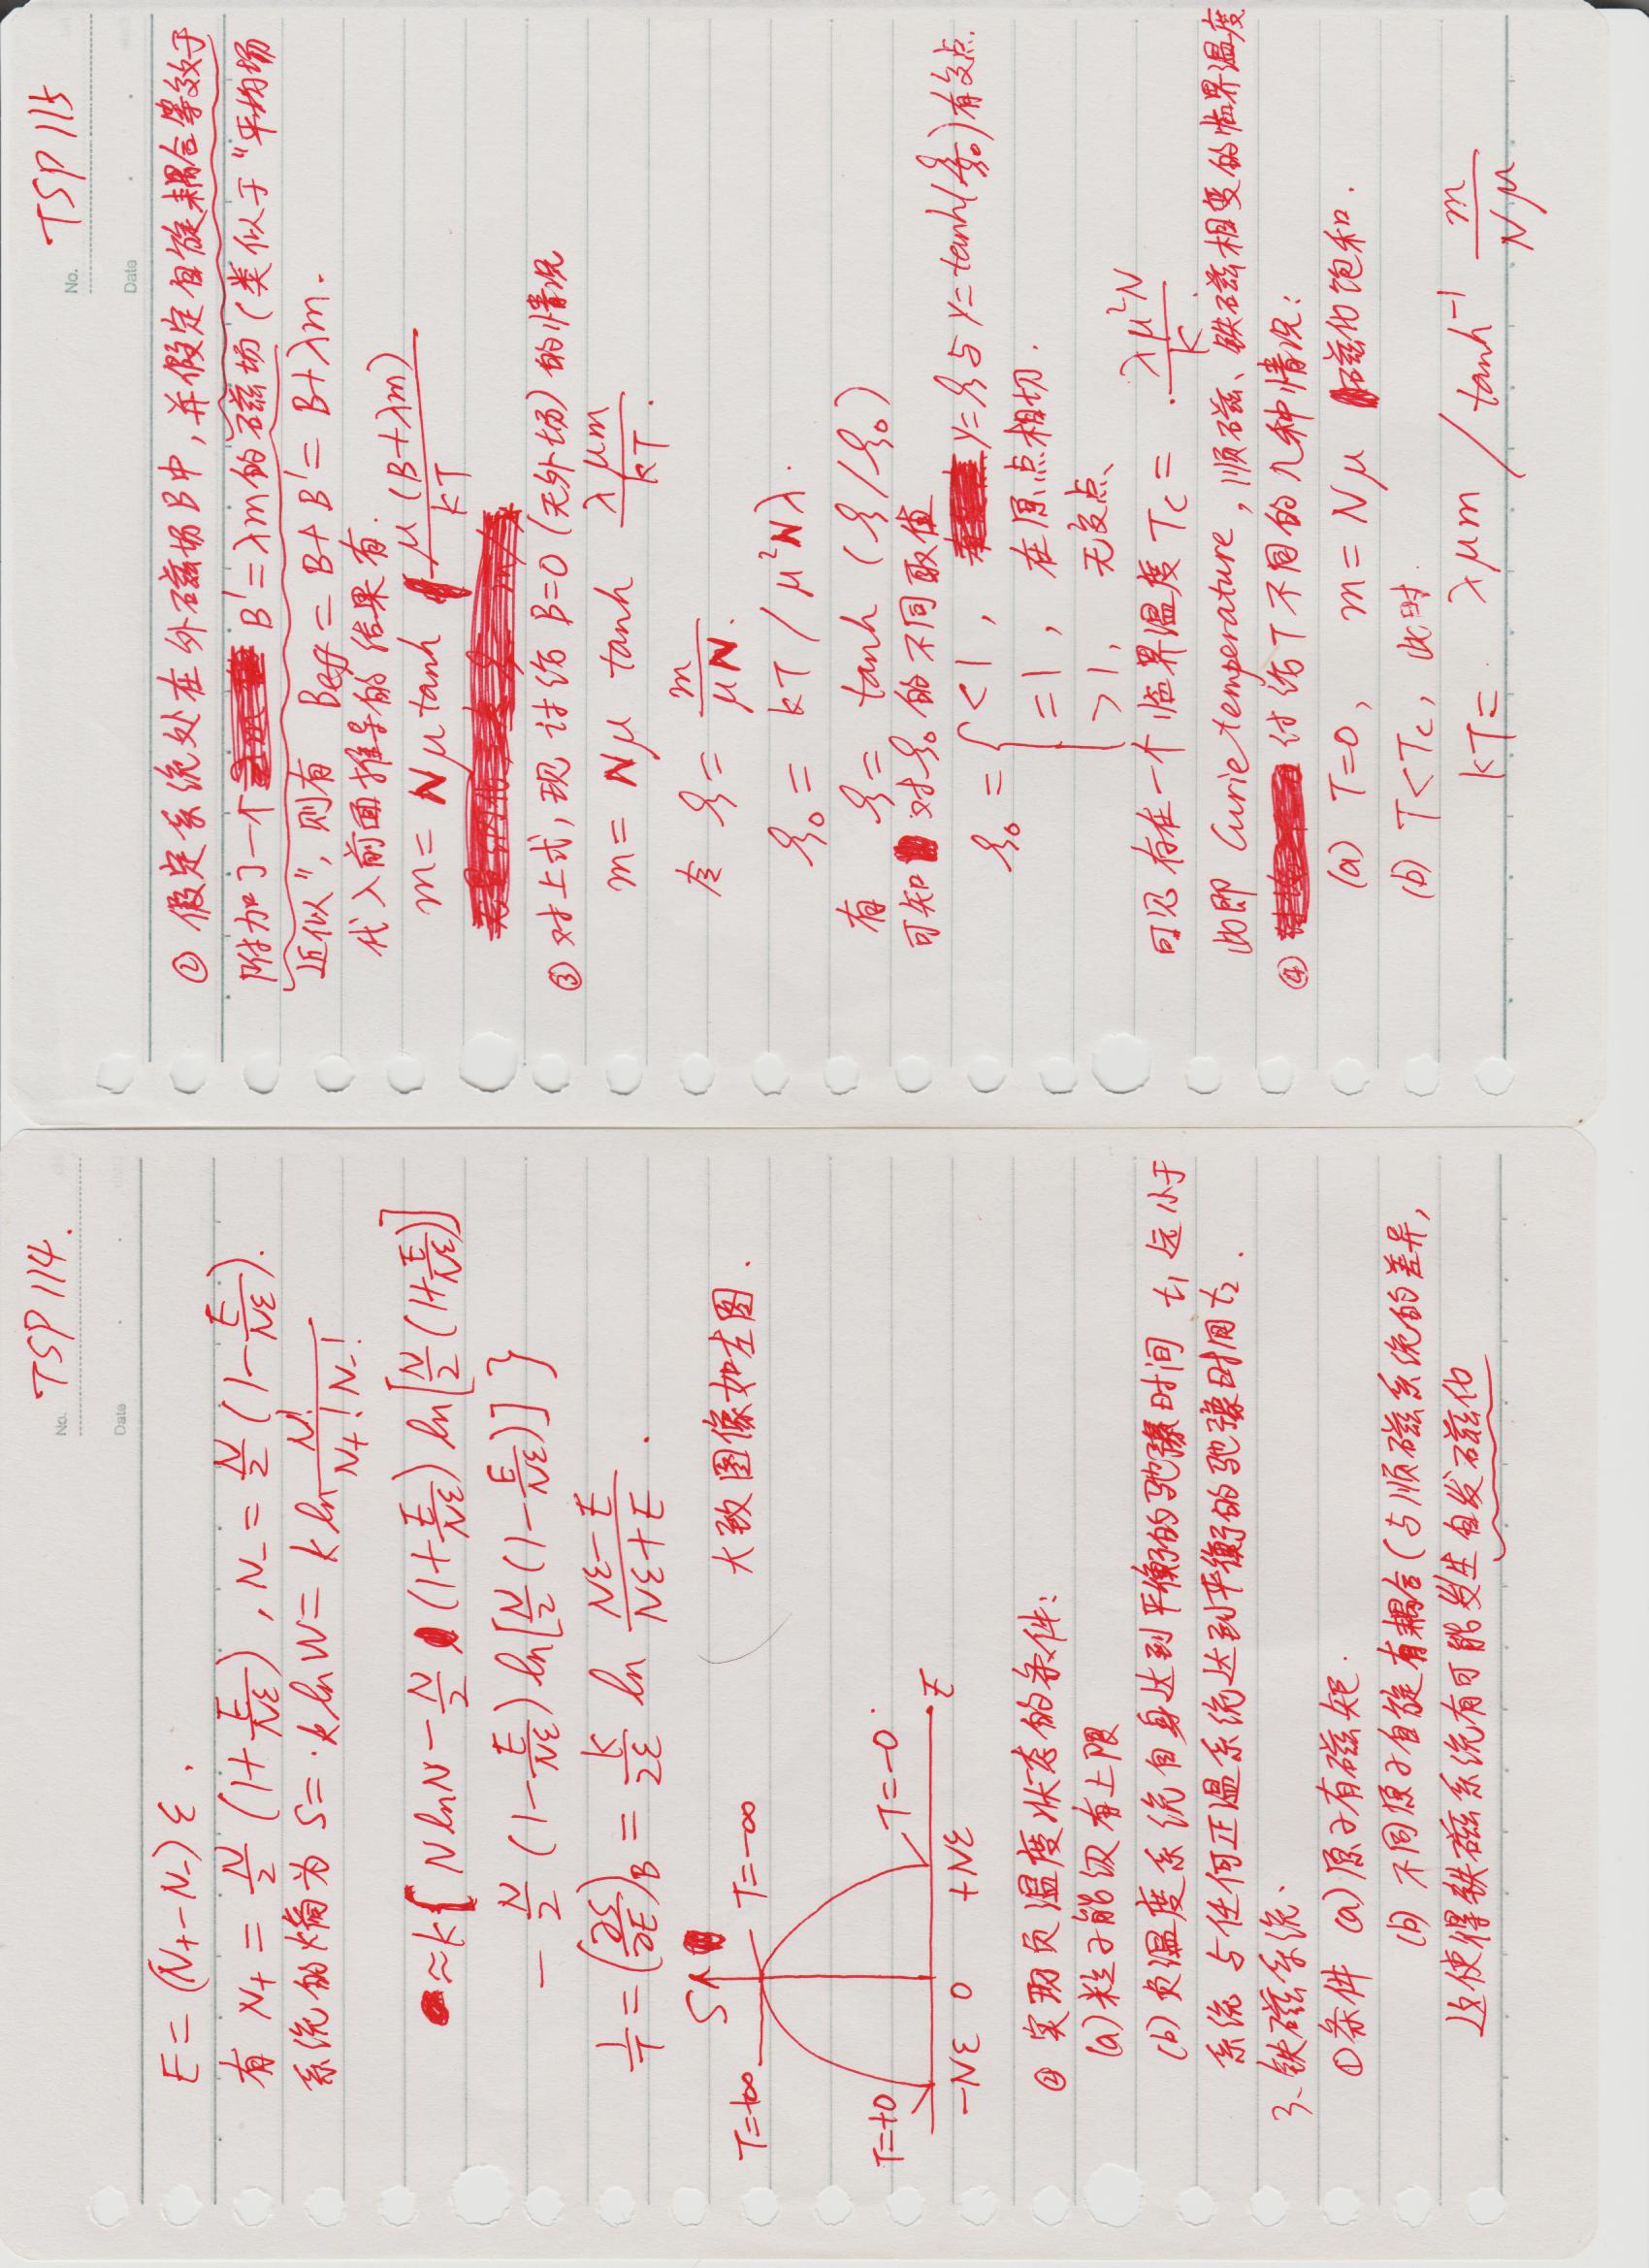 No. TSP 114.
Date
E = (N₊-N₋) ε .
有 N₊ = N/2 (1+E/Nε) , N₋ = N/2 (1-E/Nε).
系统的熵为 S= k ln W = k ln N!/(N₊! N₋!)
≈ k{ N ln N - N/2 (1+E/Nε) ln[N/2 (1+E/Nε)]
- N/2 (1-E/Nε) ln[N/2 (1-E/Nε)] }
1/T = (∂S/∂E)_B = k/2ε ln (Nε-E)/(Nε+E) .
S
T=+∞ T=-∞ 大致图像如左图.
T=+0 T=-0
-Nε 0 +Nε E
④ 实现负温度状态的条件:
(a) 粒子能级有上限
(b) 负温度系统自身达到平衡的驰豫时间 t₁ 远小于
系统与任何正温系统达到平衡的驰豫时间 t₂.
3、铁磁系统.
①条件 (a) 原子有磁矩.
(b) 不同原子自旋有耦合(与顺磁系统的差异,
这使得铁磁系统有可能发生自发磁化
No. TSP 115
Date
② 假定系统处在外磁场B中, 并假定自旋耦合等效于
附加了一个 B'=λm的磁场 (类似于"平均场
近似", 则有 Beff = B+B' = B+λm.
代入前面推导的结果有.
m = Nμ tanh μ(B+λm)/kT
③ 对上式, 现讨论 B=0 (无外场) 的情况
m = Nμ tanh λμm/kT.
令 ξ = m/μN.
ξ₀ = kT / μ²Nλ.
有 ξ = tanh (ξ/ξ₀)
可知 对ξ₀的不同取值
ξ₀ = { <1 , y=ξ与y=tanh(ξ/ξ₀)有交点.
=1 , 在原点相切.
>1 , 无交点、
可见存在一个临界温度 Tc = λμ²N/k.
此即 Curie temperature, 顺磁、铁磁相变的临界温度
④ 讨论T不同的几种情况:
(a) T=0, m = Nμ 磁化饱和.
(b) T<Tc, 此时.
kT = λμm / tanh⁻¹ m/Nμ